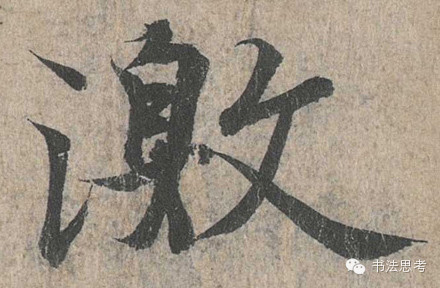 激
书法思考